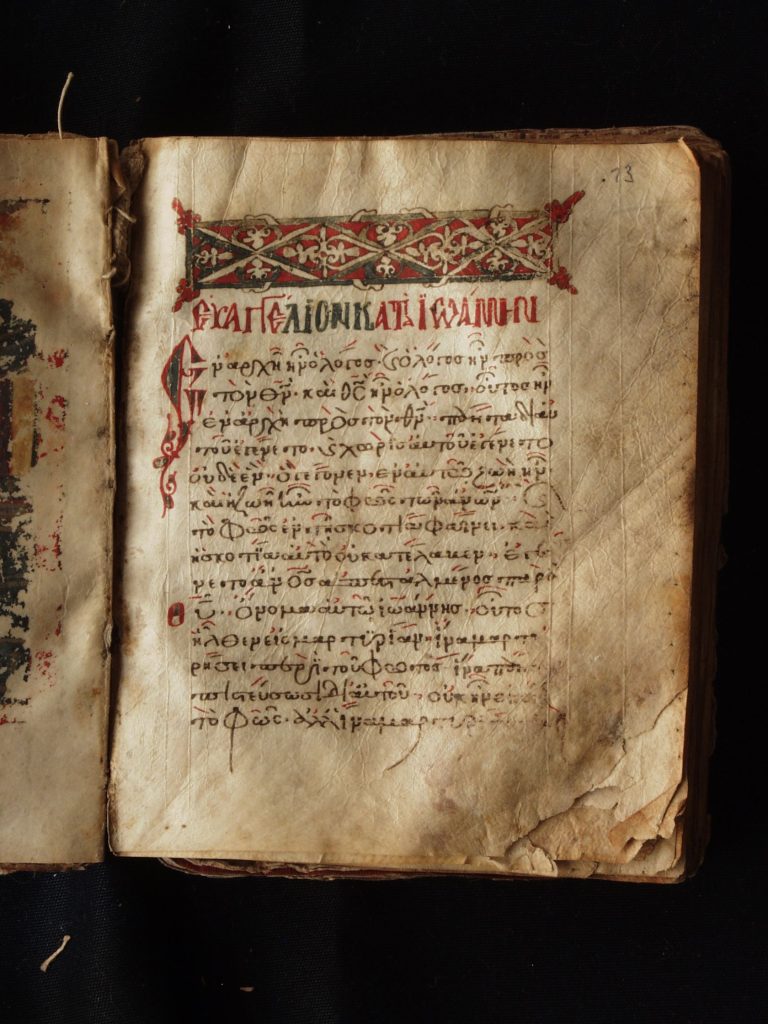 .73
ΕΥΑΓΓΕΛΙΟΝ ΚΑΤΑ ΙΩΑΝΝΗΝ
Ἐν ἀρχῆ ἦν ὁ λόγος· ϗ ὁ λόγος ἦν πρὸς
τὸν θν· καὶ θς ἦν ὁ λόγος· οὗτος ἦν
ἐν ἀρχῆ πρὸς τὸν θν· πάντα δι' αυ
τοῦ ἐγένετο· ϗ χωρὶς αυτοῦ ἐγένετο
οὐδὲ ἓν ὃ γέγονεν· ἐν αυτῶ ζωὴ ἦν·
καὶ ἡ ζωὴ ἦν τὸ φῶς τῶν ανων·
τὸ φῶς ἐν τῆ σκοτία φαίνει· καὶ
ἡ σκοτία αὐτὸ οὐ κατέλαβεν· ἐγέ
νετο ἄνος ἀπεσταλμένος παρὰ
θυ· ὄνομα αὐτῶ ἰωάννης· οὗτος
ἦλθεν εἰς μαρτυρίαν· ἵνα μαρτυ
ρήσει περὶ τοῦ φωτός· ἵνα πάν
πιστεύσωσι δι' αυτοῦ· οὐκ ἦν ἐκεῖ
τὸ φῶς· ἀλλ' ἵνα μαρτυρ